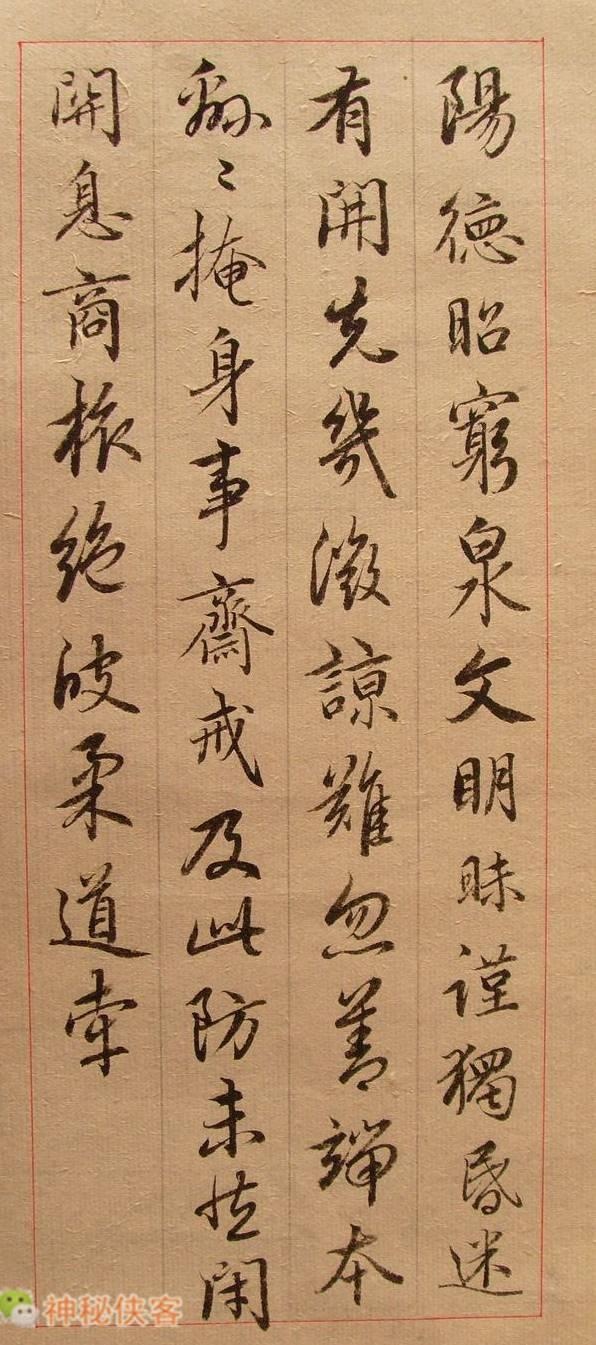 陽德昭窮泉文明昧謹獨昏迷
有開先幾微諒難忽善端本
緜〻掩身事齋戒及此防未然閉
関息商旅絕彼柔道牽
神秘侠客